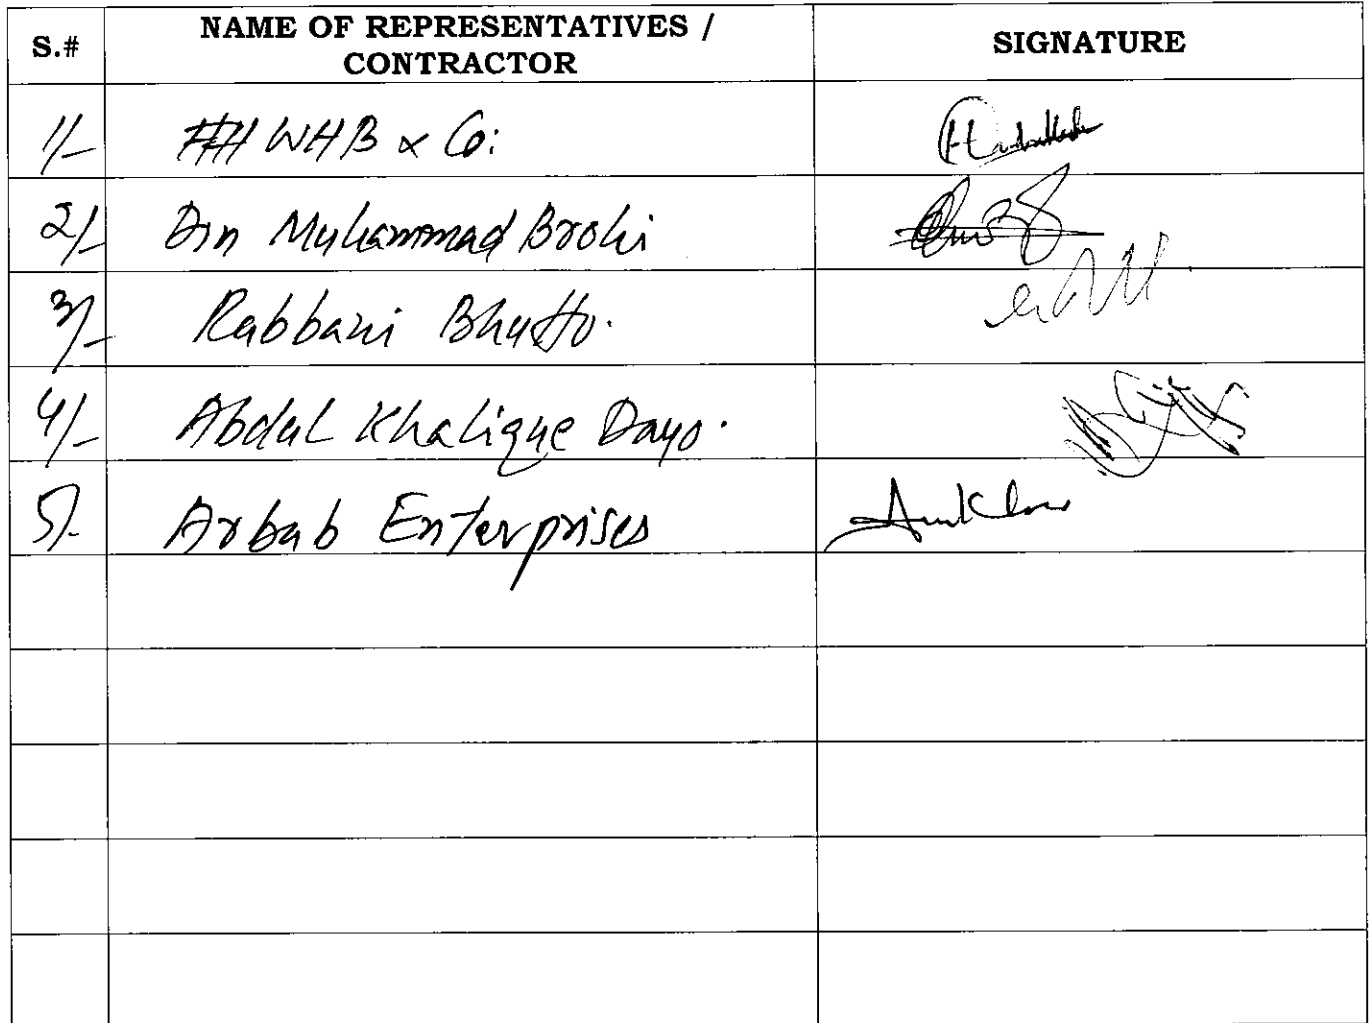 S.# NAME OF REPRESENTATIVES / CONTRACTOR SIGNATURE
1/- WHB & Co:
2/- Din Muhammad Brohi
3/- Rabbani Bhutto.
4/- Abdul Khalique Dayo.
5/- Arbab Enterprises